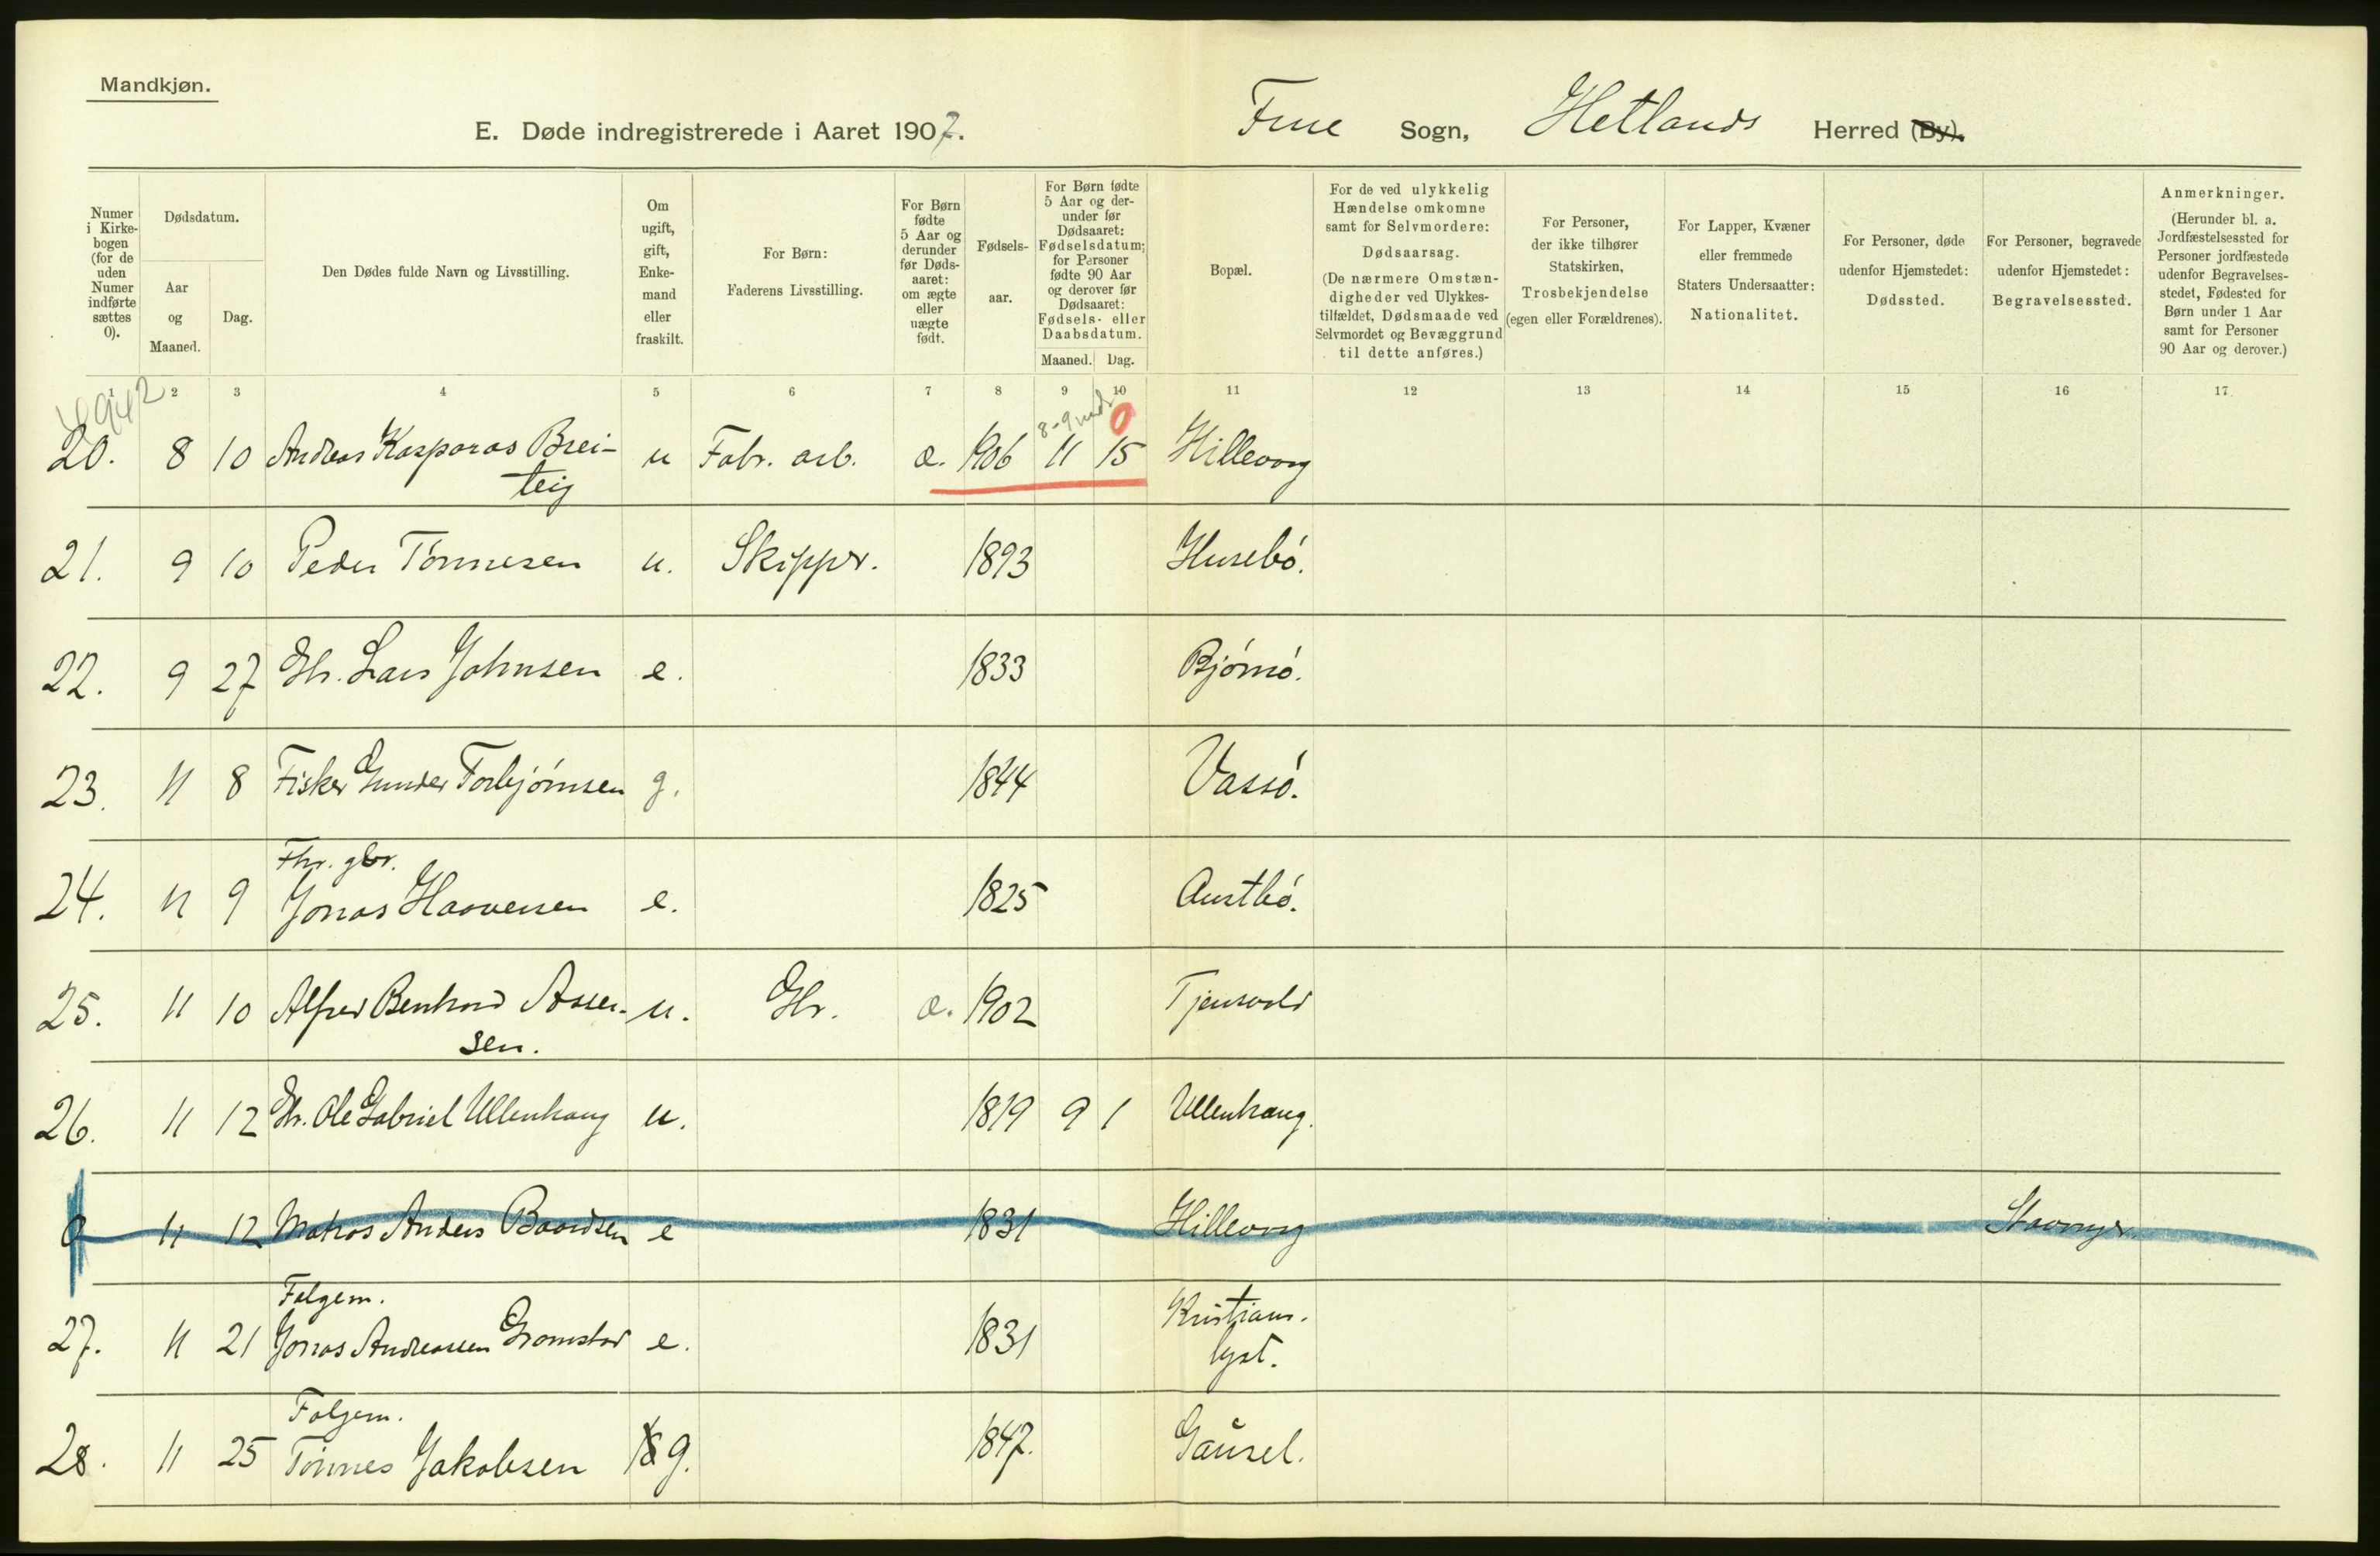 Mandkjøn.
E. Døde indregistrerede i Aaret 1907.
Frue Sogn, Hetlands Herred (By).
Numer i Kirkebogen (for de uden Numer indførte sættes 0).
Dødsdatum.
Aar og Maaned.
Dag.
Den Dødes fulde Navn og Livsstilling.
Om ugift, gift, Enkemand eller fraskilt.
For Børn: Faderens Livsstilling.
For Børn fødte 5 Aar og derunder før Dødsaaret: om ægte eller uægte født.
Fødselsaar.
For Børn fødte 5 Aar og derunder før Dødsaaret: Fødselsdatum; for Personer fødte 90 Aar og derover før Dødsaaret: Fødsels- eller Daabsdatum.
Maaned. Dag.
Bopæl.
For de ved ulykkelig Hændelse omkomne samt for Selvmordere: Dødsaarsag. (De nærmere Omstændigheder ved Ulykkestilfældet, Dødsmaade ved Selvmordet og Bevæggrund til dette anføres.)
For Personer, der ikke tilhører Statskirken, Trosbekjendelse (egen eller Forældrenes).
For Lapper, Kvæner eller fremmede Staters Undersaatter: Nationalitet.
For Personer, døde udenfor Hjemstedet: Dødssted.
For Personer, begravede udenfor Hjemstedet: Begravelsessted.
Anmerkninger. (Herunder bl. a. Jordfæstelsessted for Personer jordfæstede udenfor Begravelsesstedet, Fødested for Børn under 1 Aar samt for Personer 90 Aar og derover.)
1 2 3 4 5 6 7 8 9 10 11 12 13 14 15 16 17
8-9 mdr 0
20. 8 10 Andreas Kasparas Brei- u Fabr. arb. æ. 1906 11 15 Hillevåg
teig
21. 9 10 Peder Tønnesen u. Skippr. 1893 Husebø.
22. 9 27 Gbr. Lars Johnsen e. 1833 Bjørnø.
23. 11 8 Fisker Gunder Torbjørnsen g. 1844 Vassø.
Fhv. gbr.
24. 11 9 Jonas Haavensen e. 1825 Austbø.
25. 11 10 Alfred Bernhard Asser- u. Gbr. æ. 1902 Tjensvold
sen.
26. 11 12 Gbr. Ole Gabriel Ullenhaug u. 1819 9 1 Ullenhaug.
0 11 12 Matros Anders Baardsen e 1831 Hillevåg Stavanger.
Følgem. Kristians-
27. 11 21 Jonas Andreassen Gramstad e. 1831 lyst.
Følgem.
28. 11 25 Tønnes Jakobsen g. 1847. Gausel.